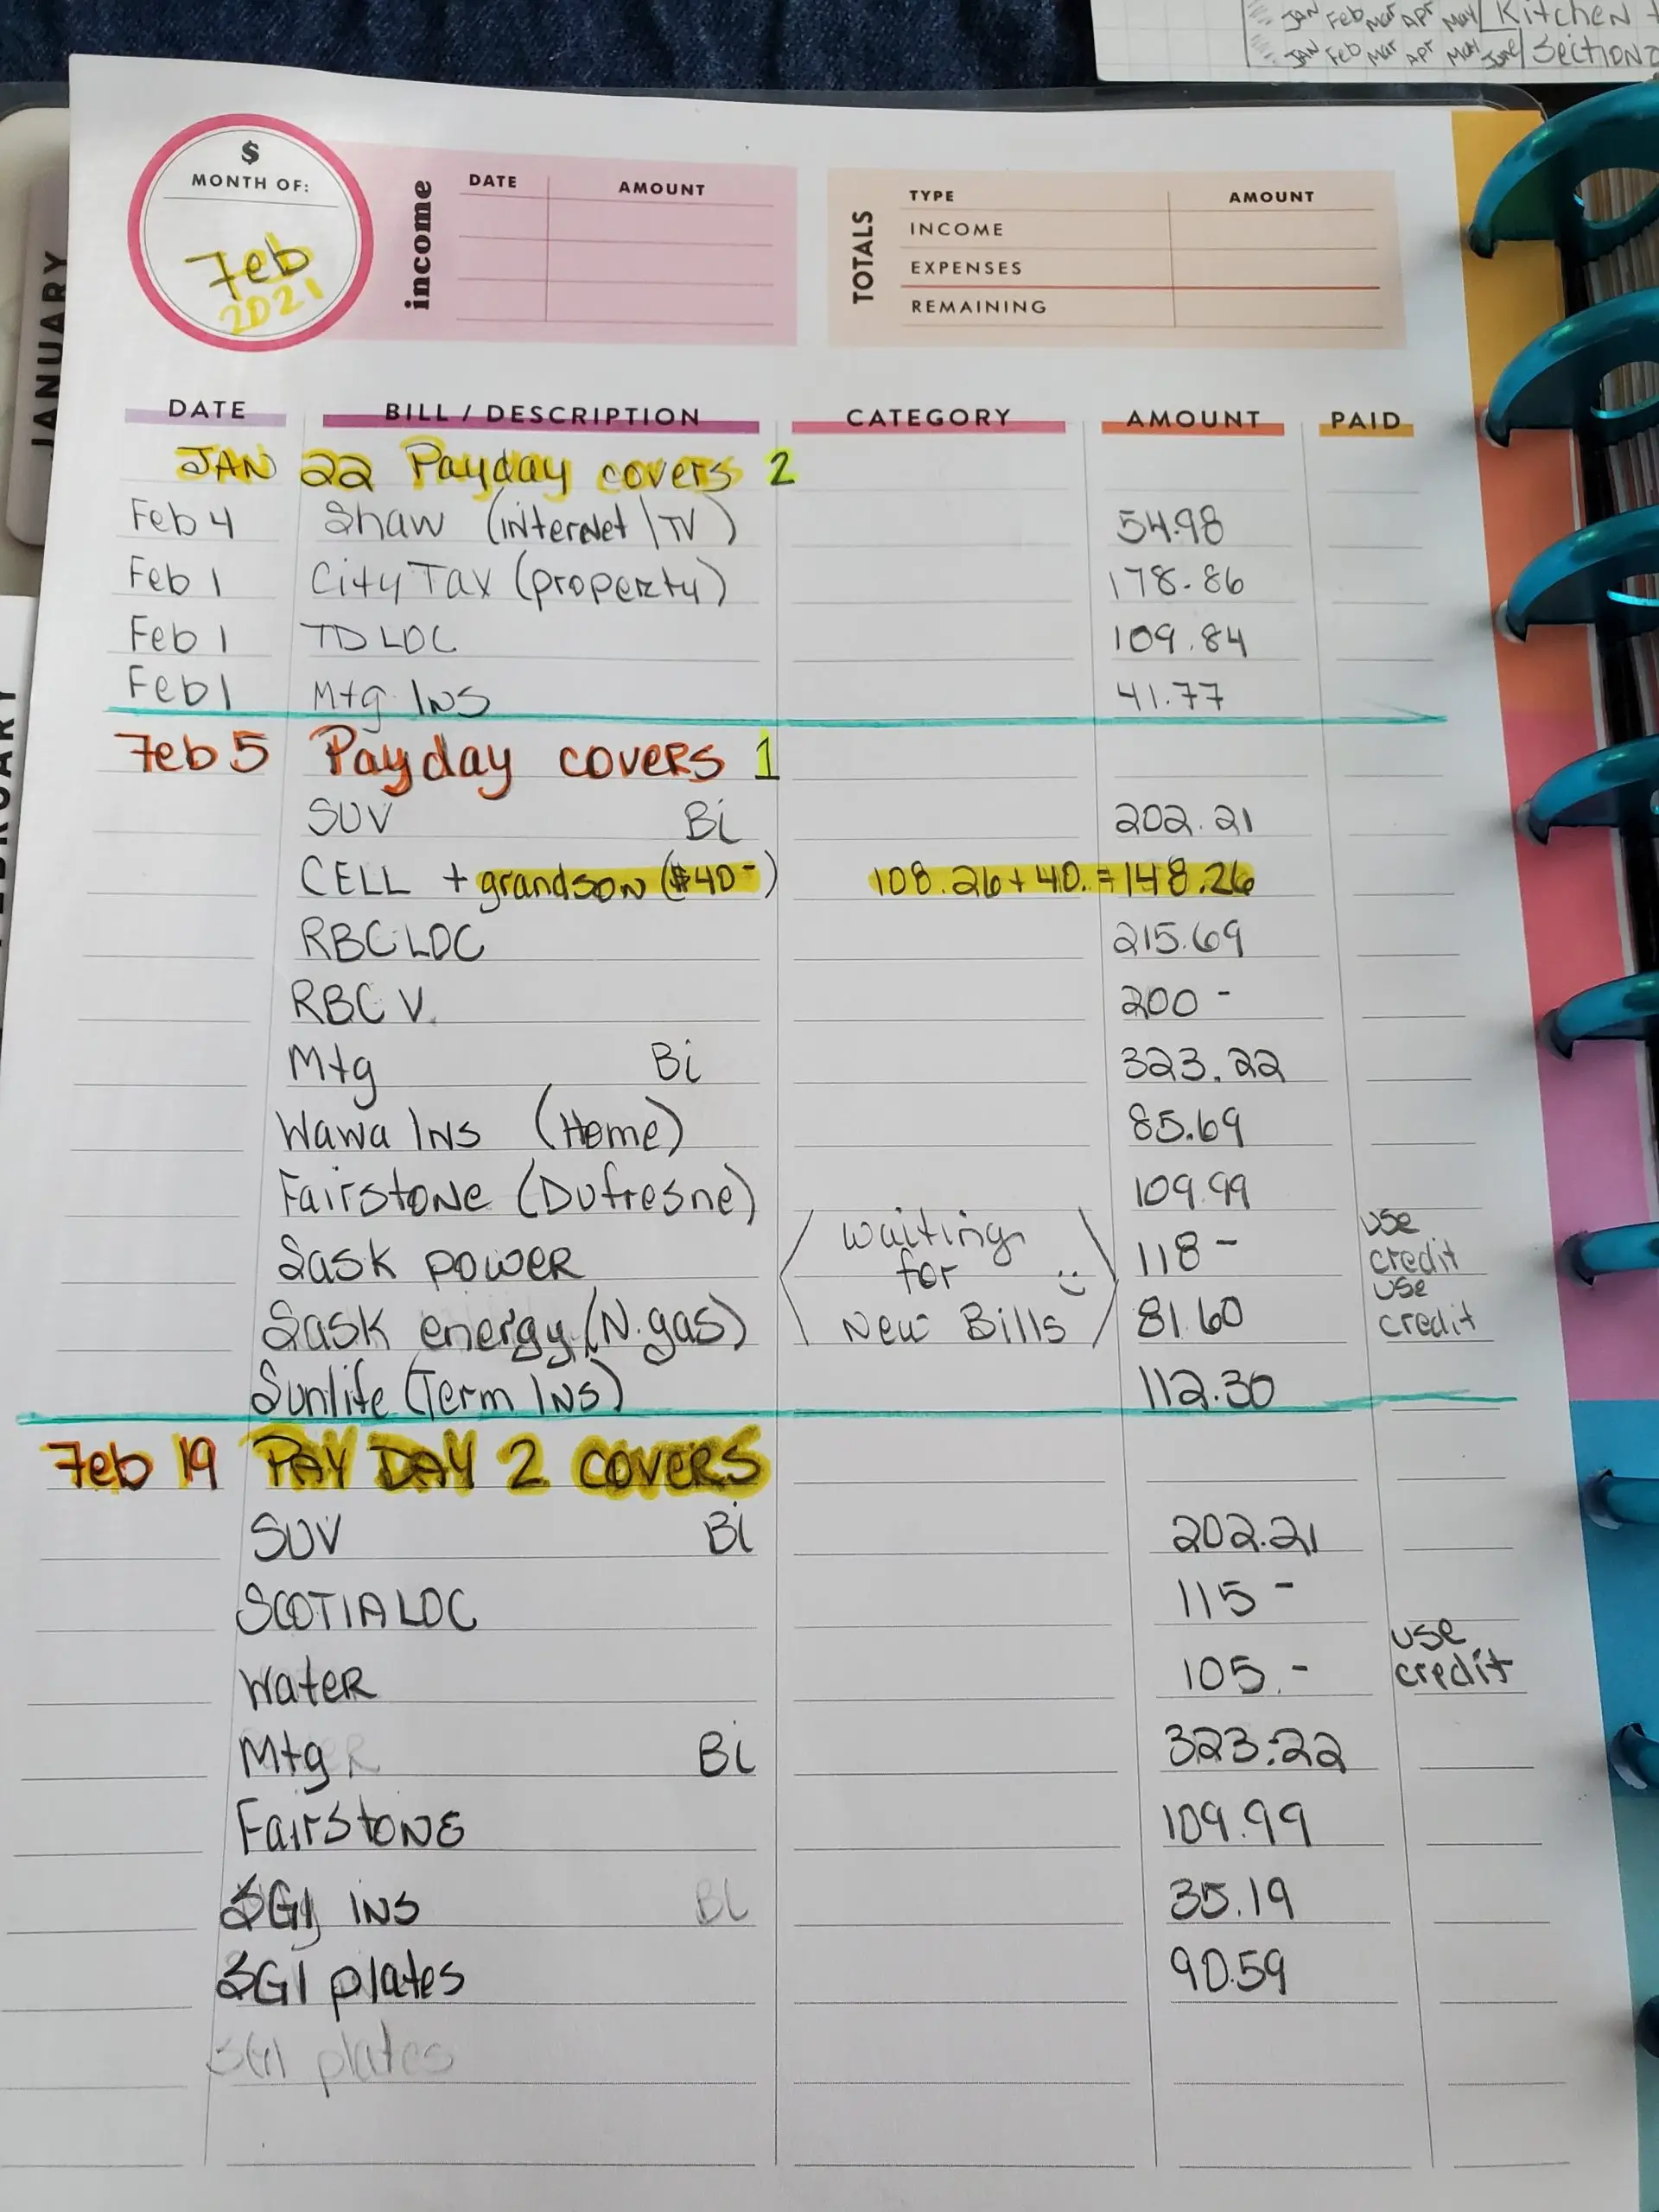 JAN Feb Mar Apr May Kitchen
JAN Feb Mar Apr May June Section
JANUARY
$
MONTH OF:
Feb
2021
income
DATE AMOUNT
TOTALS
TYPE AMOUNT
INCOME
EXPENSES
REMAINING
DATE BILL / DESCRIPTION CATEGORY AMOUNT PAID
JAN 22 Payday covers 2
Feb 4 Shaw (internet | TV) 54.98
Feb 1 City Tax (property) 178.86
Feb 1 TD LOC 109.84
Feb 1 Mtg. Ins 41.77
Feb 5 Payday covers 1
SUV Bi 202.21
CELL + grandson ($40-) 108.26 + 40. = 148.26
RBC LOC 215.69
RBC V. 200 -
Mtg Bi 323.22
Wawa Ins (Home) 85.69
Fairstone (Dufresne) 109.99
Sask power 118 - use credit
Sask energy (N.gas) 81.60 use credit
waiting
for
New Bills
Sunlife (Term Ins) 112.30
Feb 19 PAY DAY 2 COVERS
SUV Bi 202.21
SCOTIA LOC 115 -
Water 105. - use credit
Mtg Bi 323.22
Fairstone 109.99
SGI ins Bi 35.19
SGI plates 90.59
SGI plates